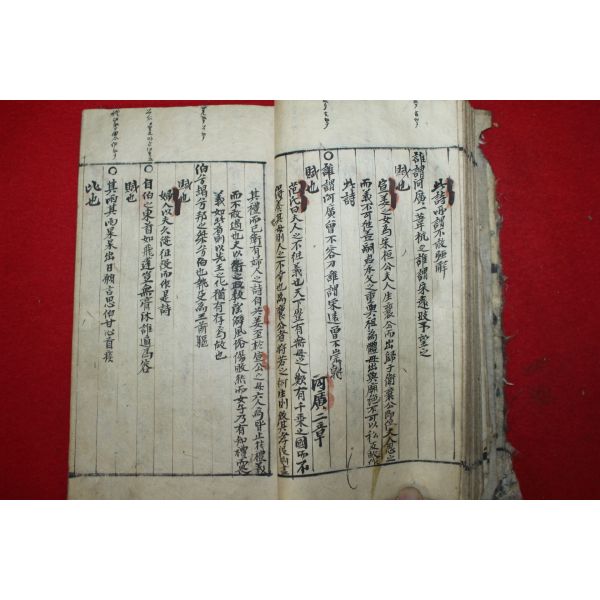 誰謂河廣一葦杭之誰謂宋遠跂予望之
賦也
宣姜之女為宋桓公夫人生襄公而出歸于衛襄公卽位夫人思之
而義不可往盖嗣君承父之重與祖為體母出與廟絶不可以私反故作
此詩
○誰謂河廣曾不容刀誰謂宋遠曾不崇朝
賦也 河廣二章
范氏曰夫人之不往義也天下豈有無母之人歟有千乘之國而不
得養其母則人之不幸也為襄公者將若之何生則致其孝沒則盡
其禮而已衛有婦人之詩自共姜至於桓公之母六人焉皆止於禮義
而不敢過也夫以衛之政敎淫僻風俗傷敗然而女子乃有知禮畏
義如此者則以先王之化猶有存焉故也
伯兮朅兮邦之桀兮伯也執殳為王前驅
賦也
婦人以夫久從征役而作是詩
○自伯之東首如飛蓬豈無膏沐誰適為容
賦也
○其雨其雨杲杲出日願言思伯甘心首疾
比也